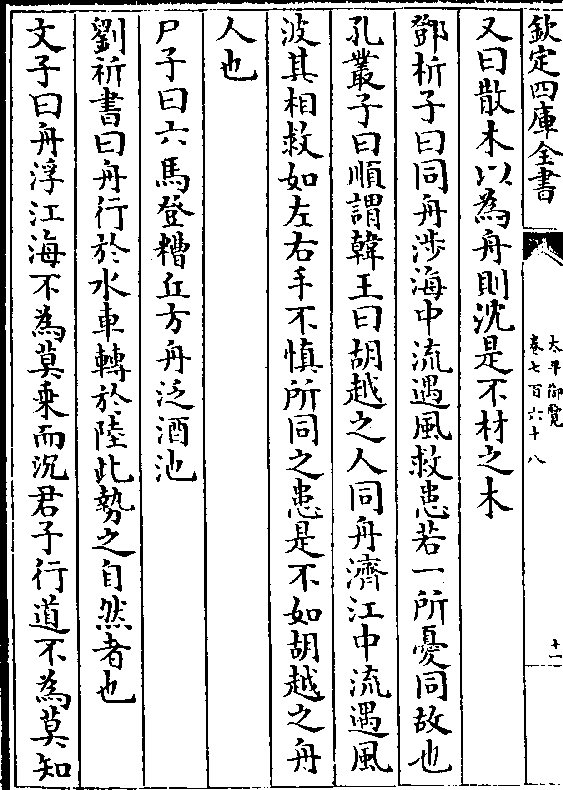 欽定四庫全書
太平御覽
卷七百六十八
十一
又曰散木以為舟則沈是不材之木
鄧析子曰同舟涉海中流遇風救患若一所憂同故也
孔叢子曰順謂韓王曰胡越之人同舟濟江中流遇風
波其相救如左右手不慎所同之患是不如胡越之舟
人也
尸子曰六馬登糟丘方舟泛酒池
劉祈書曰舟行於水車轉於陸此勢之自然者也
文子曰舟浮江海不為莫乘而沉君子行道不為莫知